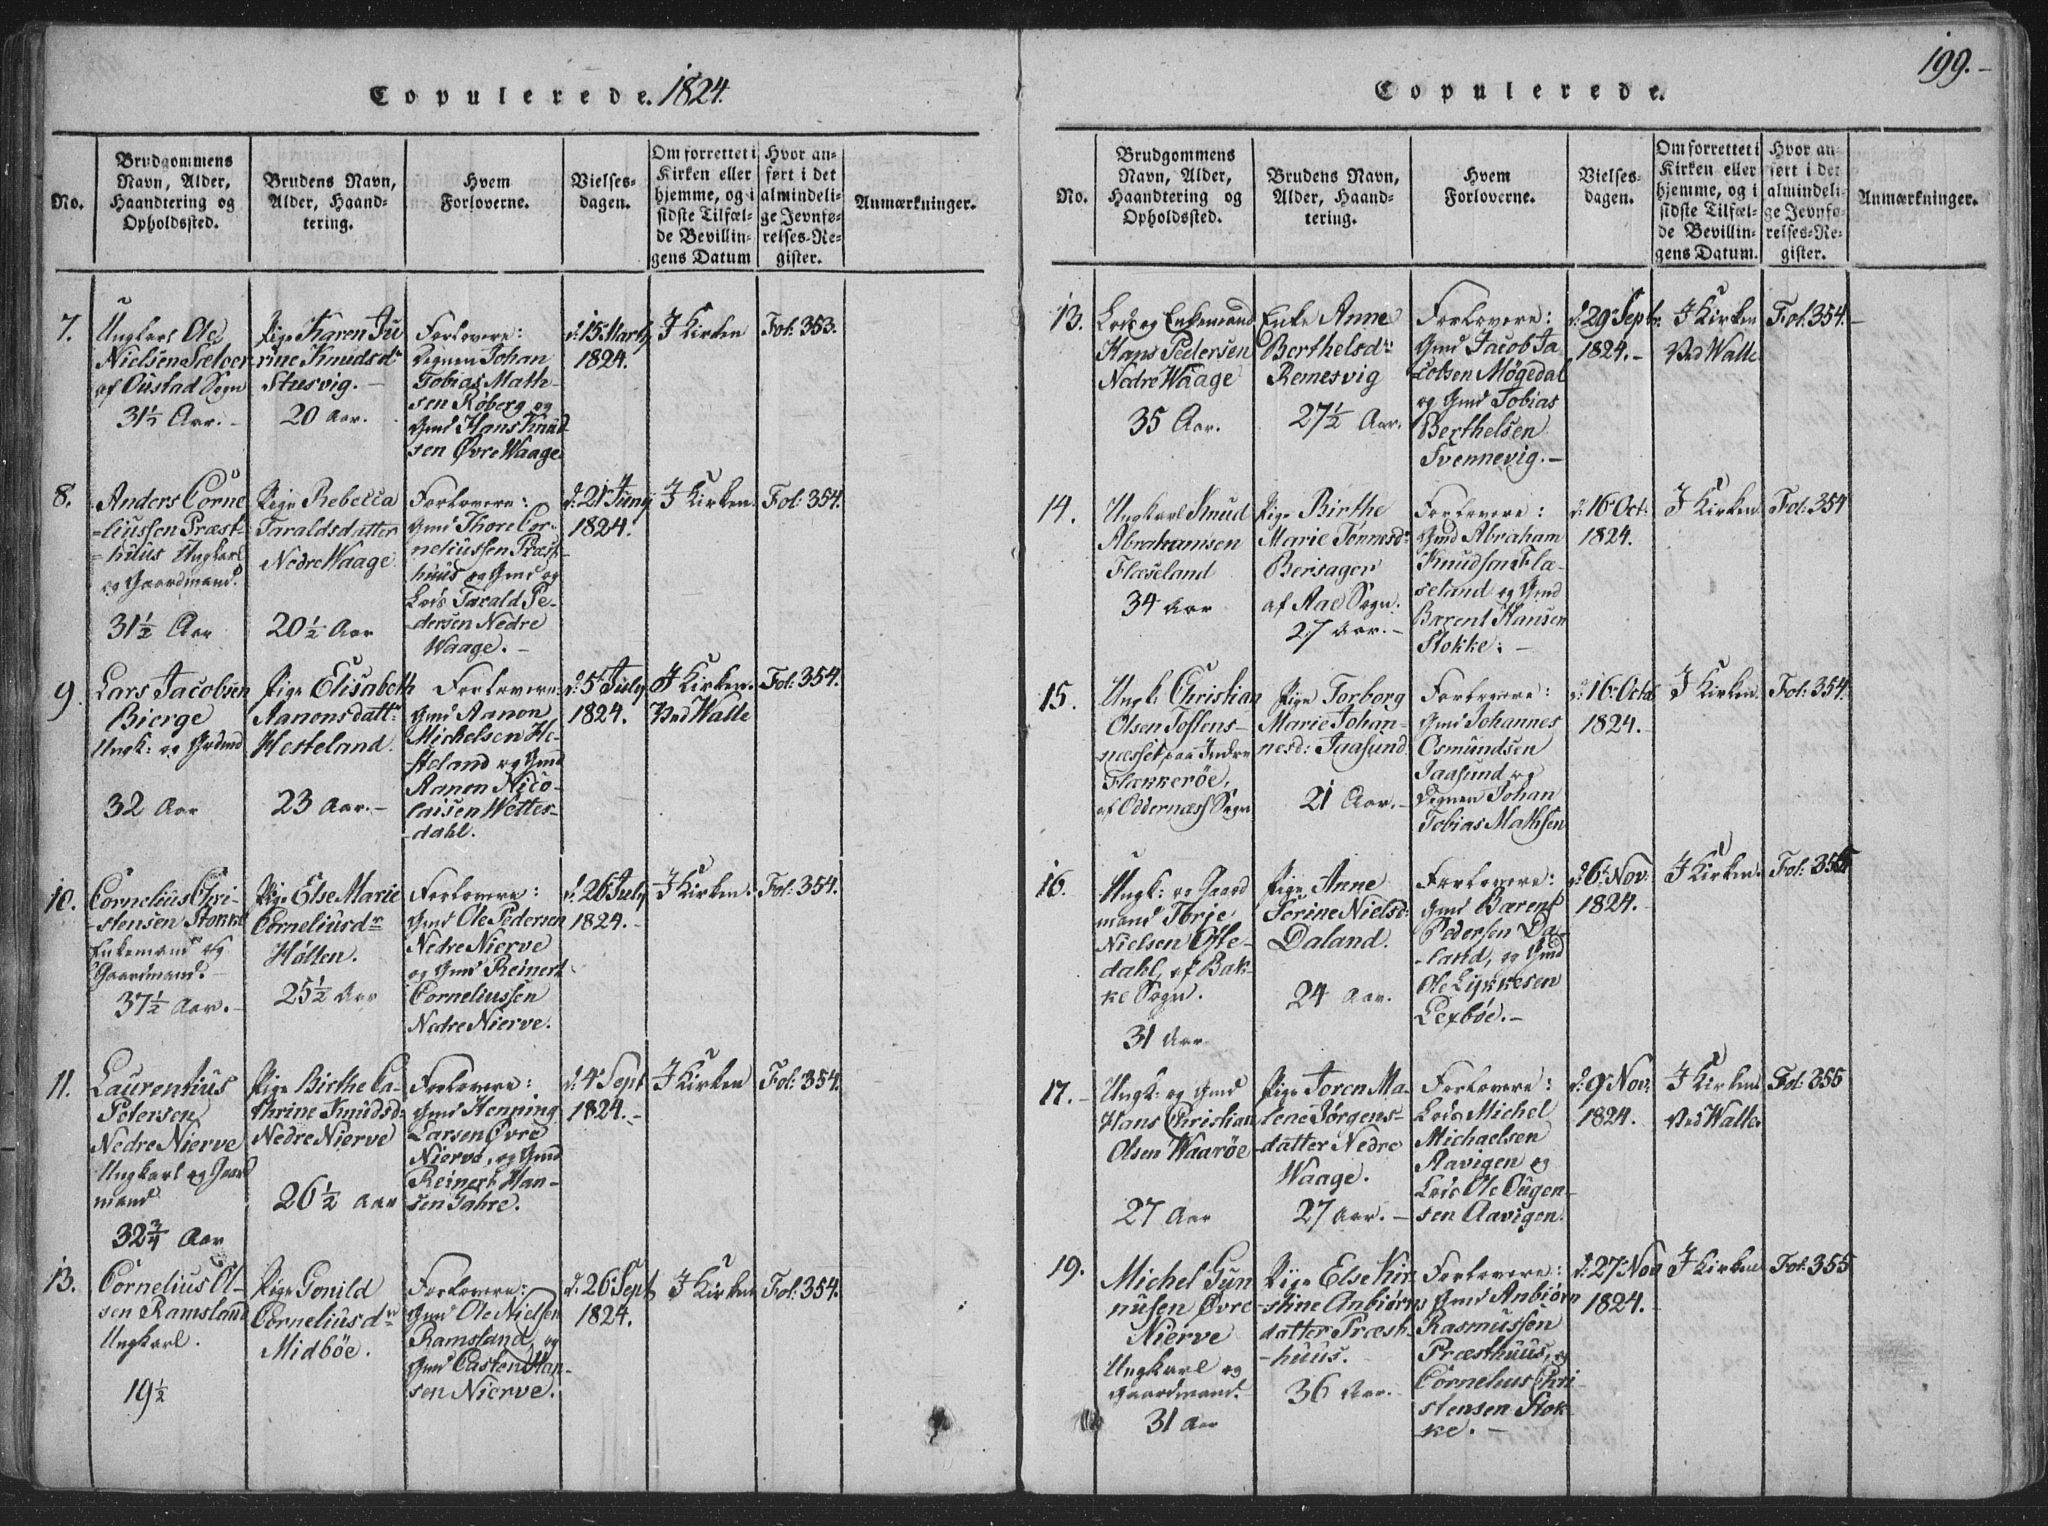 Copulerede. 1824.
No.
Brudgommens
Navn, Alder,
Haandtering og
Opholdssted.
Brudens Navn,
Alder, Haand-
tering.
Hvem
Forloverne.
Vielses-
dagen.
Om forrettet i
Kirken eller
hjemme, og i
sidste Tilfæl-
de Bevillin-
gens Datum
Hvor an-
ført i det
almindeli-
ge Jevnfø-
relses-Re-
gister.
Anmærkninger.
7.
Ungkarl Ole
Nielsen
af Sogn
31½ Aar. -
Pige Karen Ju
rine Knudsdr
Stusvig. -
20 Aar.
Forlovere:
Degnen Johan
Tobias Math-
sen Røberg og
Gmd Hans Knud
sen Øvre Waage
d: 15 Marty
1824.
I Kirken
Fol: 353.
8.
Anders Corne
-liussen Præst-
-huus Ungkarl
og Gaardmand.
31½ Aar
Pige Rebecca
Taraldsdatter
Nedre Waage
20½ Aar
Forlovere:
Gmd Thore Cor-
neliussen Præst
huus og Gmd og
Lods Tarald Pe-
dersen Nedre
Waage. -
d: 21 Juny
1824.
I Kirken.
Fol: 354.
9.
Lars Jacobsen
Bierge
Ungk: og Grdmd
32 Aar
Pige Elisabeth
Aanonsdattr
Hesteland.
23 Aar. -
Forlovere:
Gmd Aanon
Michelsen He-
-steland og Gmd
Aanon Nico-
laisen Wettes-
-dahl.
d: 5 July
1824.
I Kirken.
Ved Walle
Fol: 354.
10.
Cornelius Chri-
-stensen Stokke
Enkemand og
Gaardmand. -
37½ Aar. -
Pige Else Marie
Corneliusdr
Holten.
25½ Aar
Forlovere:
Gmd Ole Pedersen
Nedre Nierve
og Gmd Reinert
Corneliussen
Nedre Nierve.
d: 26 July
1824. -
I Kirken.
Fol: 354.
11.
Laurentius
Petersen
Nedre Nierve
Ungkarl og Gaard
mand
32¾ Aar
Pige Birthe Ca-
thrine Knudsd:
Nedre Nierve
26½ Aar
Forlovere:
Gmd Henning
Larsen Øvre
Nierve, og Gmd
Reinert Han-
sen Jahre.
d: 4 Sept
1824. -
I Kirken
Fol: 354.
13.
Cornelius Ol-
sen Ramsland
Ungkarl.
19½
Pige Gonild
Corneliusdr
Midbøe.
Forlovere:
Gmd Ole Nielsen
Ramsland, og
Gmd Casten Han-
sen Nierve.
d: 26 Sept
1824.
I Kirken
Fol: 354.
199. -
Copulerede.
No.
Brudgommens
Navn, Alder,
Haandtering og
Opholdssted.
Brudens Navn,
Alder, Haand-
tering.
Hvem
Forloverne.
Vielses-
dagen.
Om forrettet i
Kirken eller
hjemme, og i
sidste Tilfæl-
de Bevillin-
gens Datum.
Hvor an-
ført i det
almindeli-
ge Jevnfø-
relses-Re-
gister.
Anmærkninger.
13.
Lods og Enkemand
Hans Pedersen
Nedre Waage
35 Aar.
Enke Anne
Berthelsdr:
Remesvig
27½ Aar.
Forlovere:
Gmd Jacob Ja-
cobsen Møgedal
og Gmd Tobias
Berthelsen
Svennevig. -
d: 29 Septr.
1824. -
I Kirken
Ved Walle
Fol: 354. -
14.
Ungkarl Knud
Abrahamsen
Flæseland
34 Aar
Pige Birthe
Marie Tønnesdr
Bersager
af Aae Sogn.
27 Aar. -
Forlovere:
Gmd Abraham
Knudsen Flæ-
seland og Gmd
Barent Hansen
Stokke: -
d: 16 Oct:
1824.
I Kirken
Fol: 354
15.
Ungk: Christian
Olsen Toftens-
næsset, paa Indre
Flækkerøe,
af Oddernæss Sogn
Pige Torborg
Marie Johan-
nesd: Jaasund
21 Aar. -
Forlovere:
Gmd Johannes
Osmundsen
Jaasund og
Degnen Johan
Tobias Mathsen
d: 16 Octr
1824. -
I Kirken.
Fol: 354.
16.
Ungk: og Gaard
mand Torje
Nielsen Ofte-
dahl, af Bak-
ke Sogn.
31 Aar
Pige Anne
Serine Nielsd:
Daland.
24 Aar.
Forlovere:
Gmd Barent
Pedersen Da-
-land, og Gmd
Ole Lykkesen
Lexbøe. -
d: 6 Nov:
1824. -
I Kirken.
Fol: 355
17. -
Ungk: og Gmd
Hans Christian
Olsen Waarøe
27 Aar
Pige Soren Ma-
lene Jørgens-
datter Nedre
Waage.
27 Aar. -
Forlovere:
Lods Michel
Michaelsen
Aavigen og
Lods Ole Ougen-
sen Aavigen.
d: 9 Nov:
1824.
I Kirken
Ved Walle.
Fol: 355
19.
Michel Gun
nusen Øvre
Nierve
Ungkarl og
Gaardmand.
31 Aar
Pige Else Kir
stine Anbiørns
datter Præst-
-huus.
36 Aar.
Forlovere:
Gmd Anbiørn
Rasmussen
Præsthuus, og
Cornelius Chri
stensen Stok-
ke. -
d: 27 Nov
1824.
I Kirken
Fol: 355